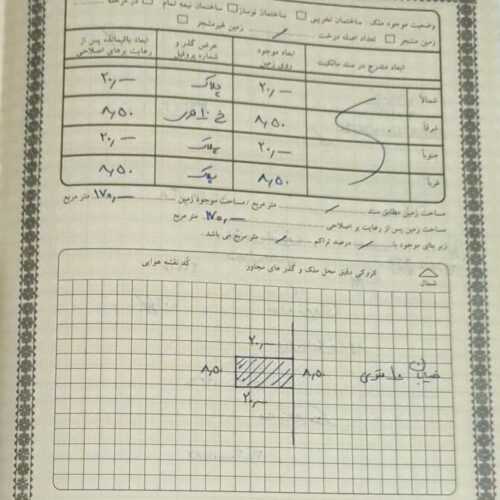 وضعیت موجود ملک ـ ساختمان تخریبی ☐ ساختمان نوساز ☐ ساختمان نیمه تمام ☐
زمین مشجر ☐ تعداد اصله درخت / زمین غیرمشجر ☐
ابعاد مندرج در سند مالکیت | ابعاد موجود روی زمین | عرض گذر و شماره پروفیل | ابعاد باقیمانده پس از رعایت برهای اصلاحی
شمالاً ۲۰,— پلاک ۲۰,—
شرقاً ۸,۵۰ خ ۱۰ متری ۸,۵۰
جنوباً ۲۰,— پلاک ۲۰,—
غرباً ۸,۵۰ پلاک ۸,۵۰
مساحت زمین مطابق سند / متر مربع / مساحت موجود زمین ۱۷۰,— متر مربع
مساحت زمین پس از رعایت بر اصلاحی ۱۷۰,— متر مربع
زیر بنای موجود با / درصد تراکم / متر مربع می باشد .
شمال
کروکی دقیق محل ملک و گذر های مجاور
کد نقشه هوایی
۲۰,—
۸,۵۰
۸,۵۰
خیابان ۱۰ متری
۲۰,—